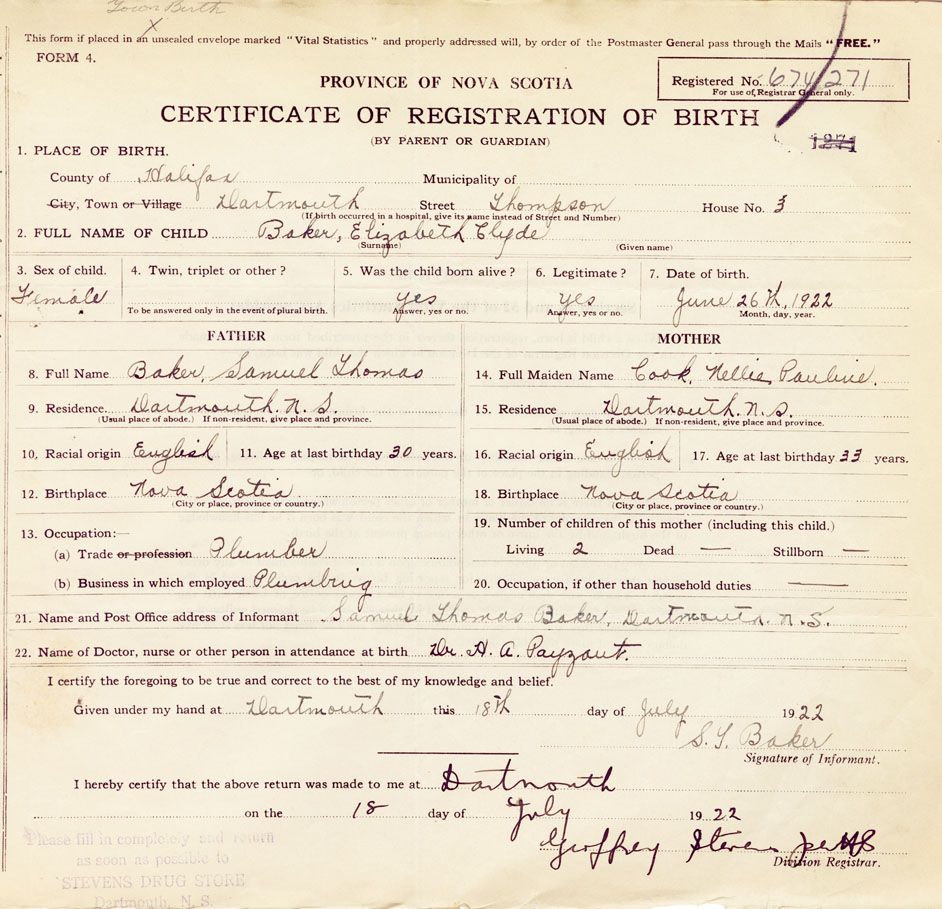 Town Birth
X
This form if placed in an unsealed envelope marked "Vital Statistics" and properly addressed will, by order of the Postmaster General pass through the Mails "FREE."
FORM 4.
PROVINCE OF NOVA SCOTIA
Registered No. 674/271
For use of Registrar General only.
CERTIFICATE OF REGISTRATION OF BIRTH
(BY PARENT OR GUARDIAN)
1271
1. PLACE OF BIRTH.
County of Halifax Municipality of
City, Town or Village Dartmouth Street Thompson House No. 3
(If birth occurred in a hospital, give its name instead of Street and Number)
2. FULL NAME OF CHILD Baker, Elizabeth Clyde
(Surname) (Given name)
3. Sex of child. 4. Twin, triplet or other? 5. Was the child born alive? 6. Legitimate? 7. Date of birth.
Female yes yes June 26th, 1922
To be answered only in the event of plural birth. Answer, yes or no. Answer, yes or no. Month, day, year.
FATHER MOTHER
8. Full Name Baker, Samuel Thomas 14. Full Maiden Name Cook, Nellie Pauline.
9. Residence Dartmouth. N. S. 15. Residence Dartmouth. N. S.
(Usual place of abode.) If non-resident, give place and province. (Usual place of abode.) If non-resident, give place and province.
10, Racial origin English 11. Age at last birthday 30 years. 16. Racial origin English 17. Age at last birthday 33 years.
12. Birthplace Nova Scotia 18. Birthplace Nova Scotia
(City or place, province or country.) (City or place, province or country.)
13. Occupation:— 19. Number of children of this mother (including this child.)
(a) Trade or profession Plumber Living 2 Dead — Stillborn —
(b) Business in which employed Plumbing 20. Occupation, if other than household duties —
21. Name and Post Office address of Informant Samuel Thomas Baker, Dartmouth. N. S.
22. Name of Doctor, nurse or other person in attendance at birth Dr. H. A. Payzant.
I certify the foregoing to be true and correct to the best of my knowledge and belief.
Given under my hand at Dartmouth this 18th day of July 1922
S. T. Baker
Signature of Informant.
I hereby certify that the above return was made to me at Dartmouth
on the 18 day of July 1922
Geoffrey Stevens per
Division Registrar.
Please fill in completely and return
as soon as possible to
STEVENS DRUG STORE
Dartmouth, N. S.